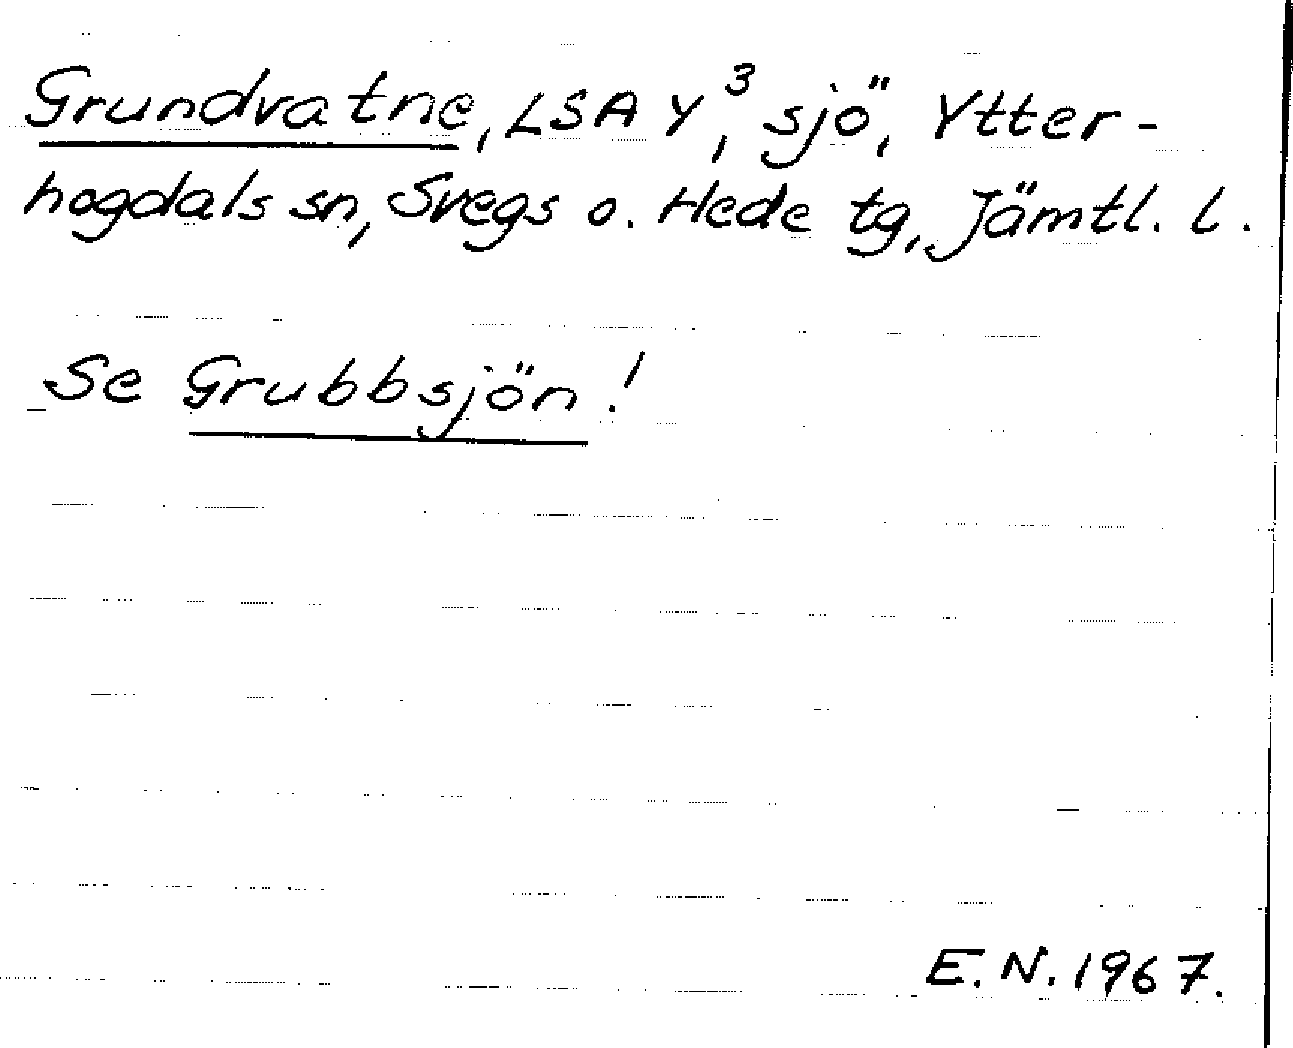 Grundvatne, LSA Y³, sjö, Ytter-
hogdals sn, Svegs o. Hede tg, Jämtl. l.
Se Grubbsjön!
E. N. 1967.